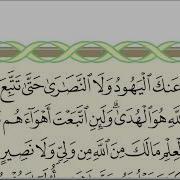 عَنكَ ٱلْيَهُودُ وَلَا ٱلنَّصَٰرَىٰ حَتَّىٰ تَتَّبِعَ
ٱللَّهِ هُوَ ٱلْهُدَىٰ ۗ وَلَئِنِ ٱتَّبَعْتَ أَهْوَآءَهُم
ٱلْعِلْمِ مَا لَكَ مِنَ ٱللَّهِ مِن وَلِيٍّ وَلَا نَصِيرٍ